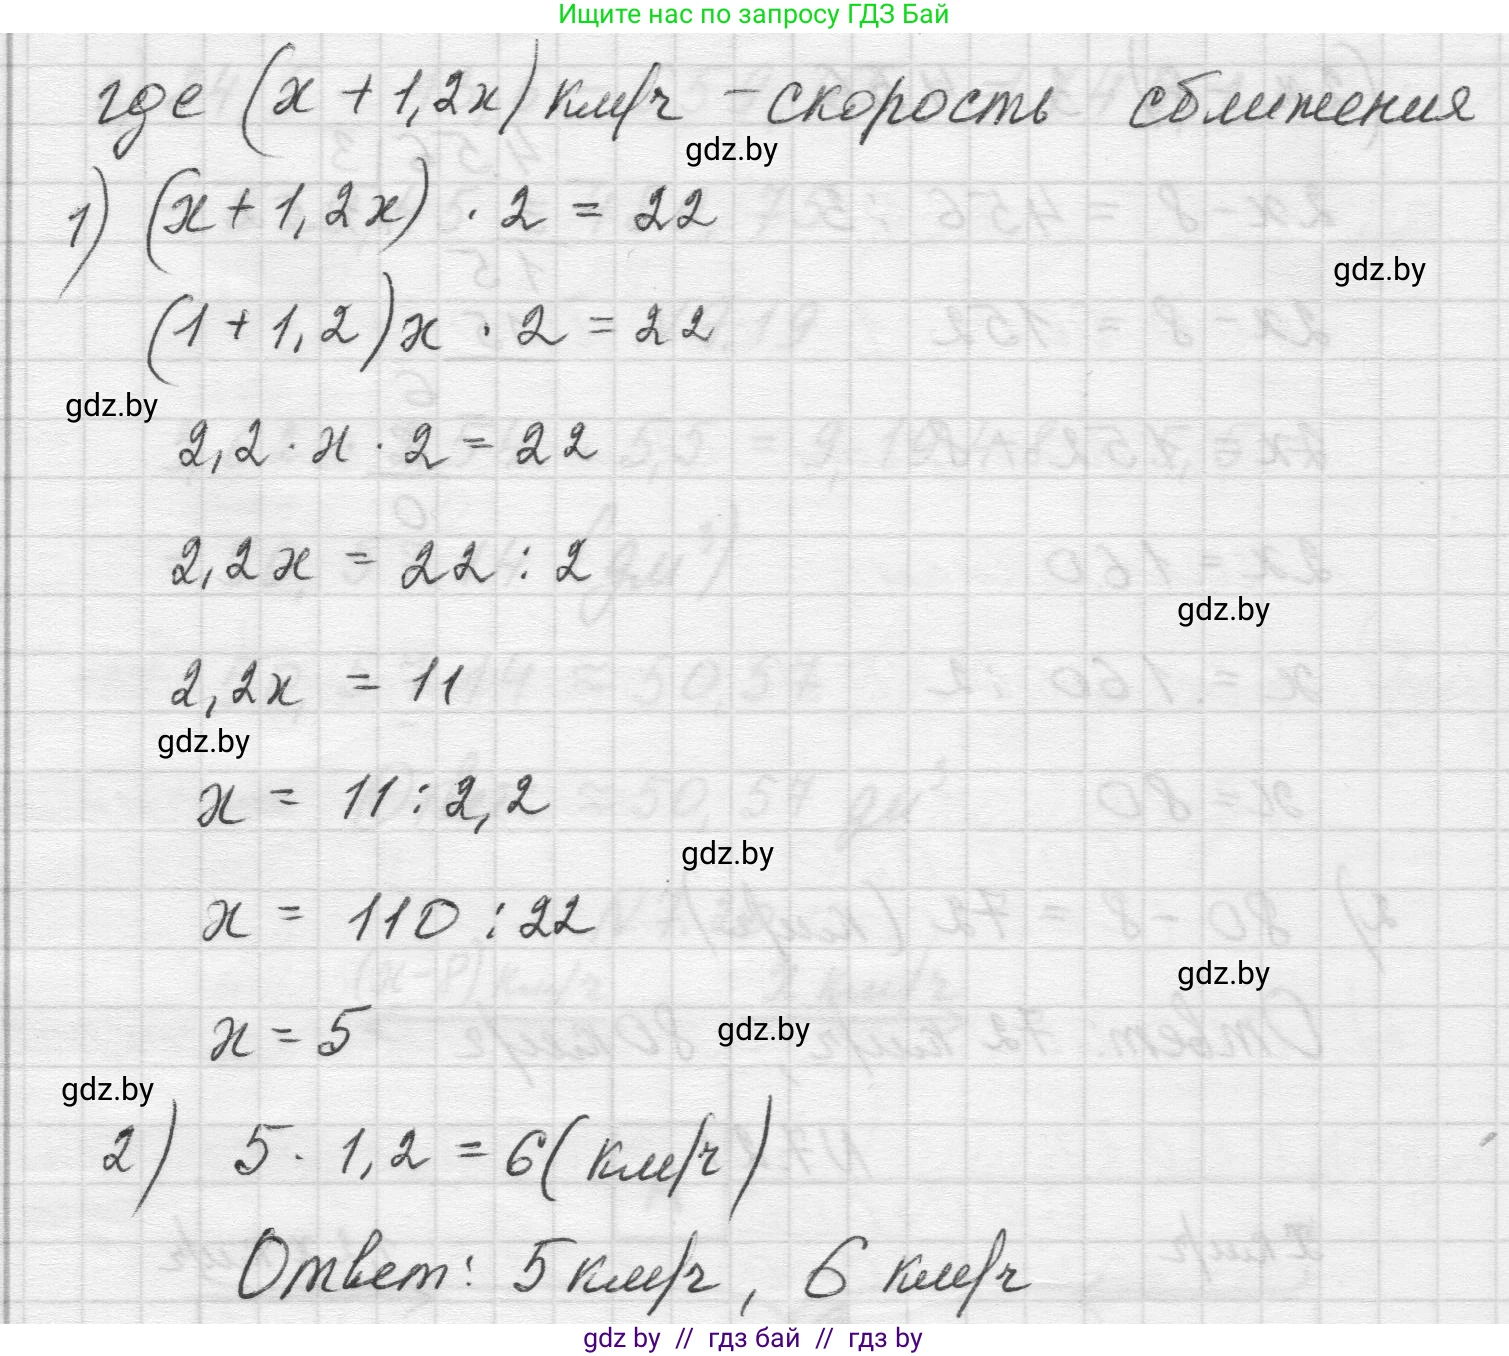 Ищите нас по запросу ГДЗ Бай
где (x + 1,2x) км/ч – скорость сближения
gdz.by
1) (x + 1,2x) · 2 = 22
gdz.by
(1 + 1,2)x · 2 = 22
gdz.by
2,2 · x · 2 = 22
2,2x = 22 : 2
gdz.by
2,2x = 11
gdz.by
x = 11 : 2,2
gdz.by
x = 110 : 22
gdz.by
x = 5
gdz.by
gdz.by
2) 5 · 1,2 = 6 (км/ч)
Ответ: 5 км/ч, 6 км/ч
gdz by // гдз бай // гдз by